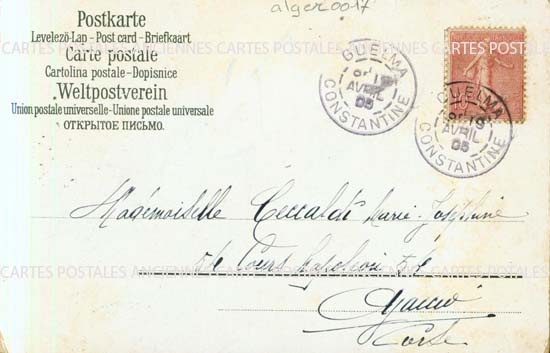 alger0017
Postkarte
Levelező-Lap - Post card - Briefkaart
Carte postale
Cartolina postale - Dopisnice
Weltpostverein
Union postale universelle - Unione postale universale
ОТКРЫТОЕ ПИСЬМО.
GUELMA
19
AVRIL
05
CONSTANTINE
GUELMA
19
AVRIL
05
CONSTANTINE
CARTES POSTALES ANCIENNES CARTES POSTALES ANCIENNES CARTES POSTALES
Mademoiselle Ceccaldi Marie-Joséphine
54 Cours Napoléon 54
CARTES POSTALES ANCIENNES CARTES POSTALES ANCIENNES CARTES POSTALES
Ajaccio
Corse